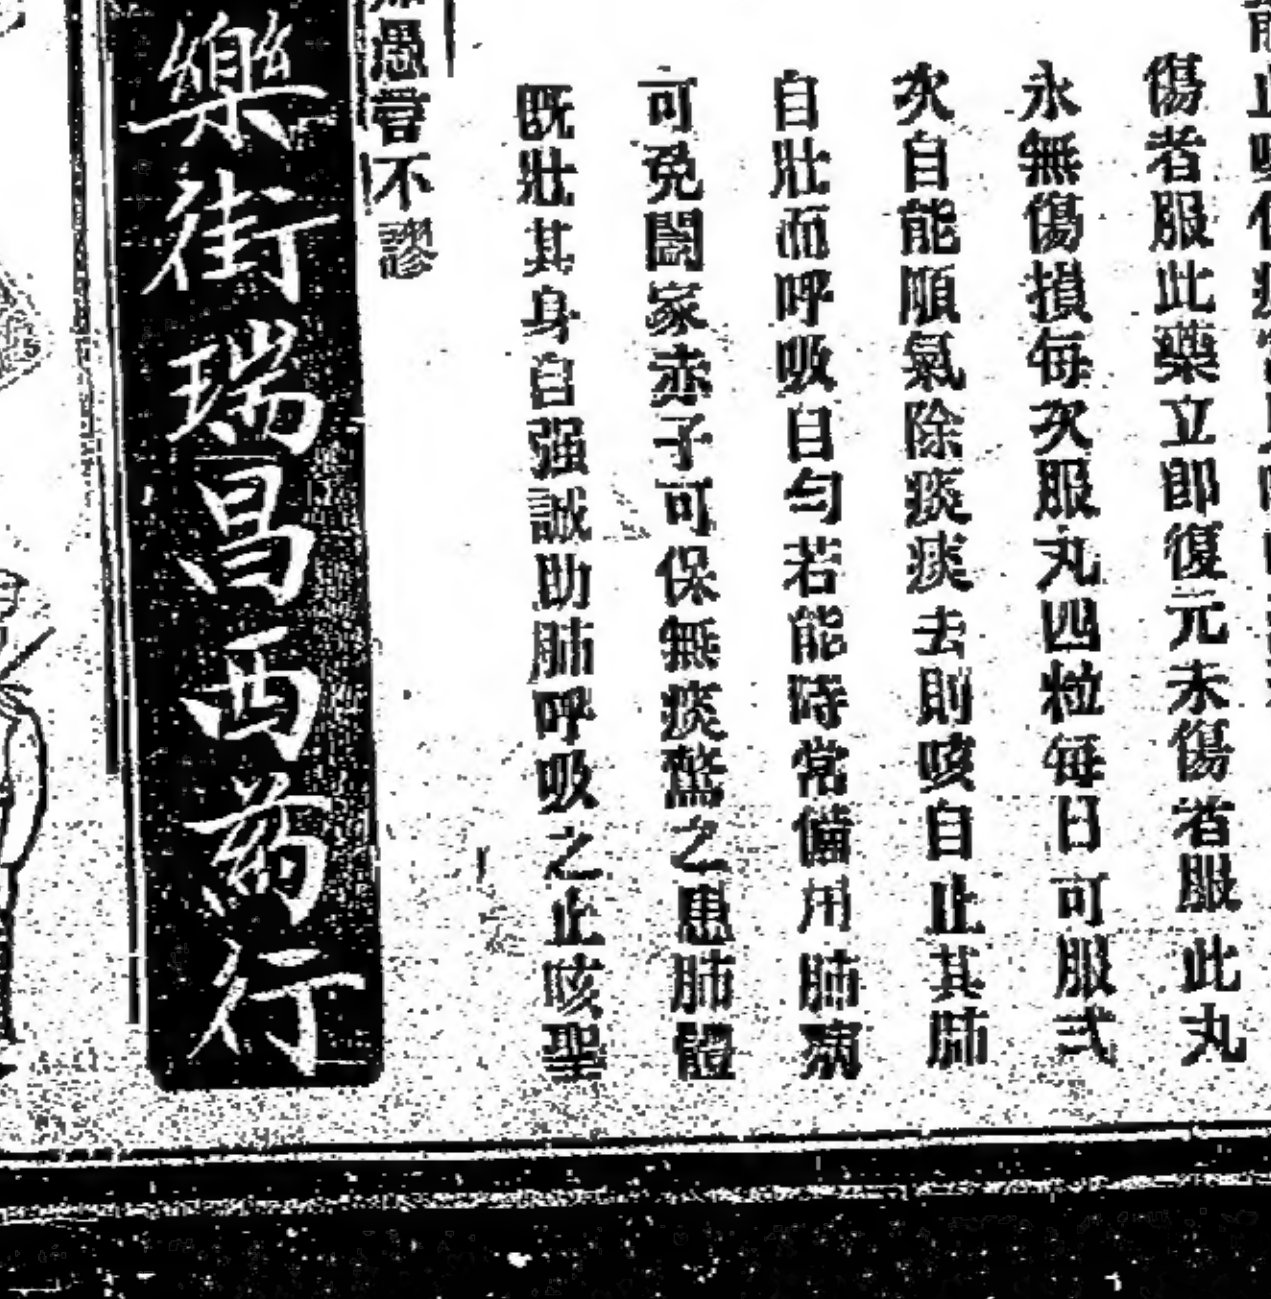 傷者服此藥立即復元未傷者服此丸
永無傷損每次服丸四粒每日可服弍
次自能順氣除痰痰去則咳自止其肺
自壯而呼吸自勻若能時常備用肺病
可免闔家赤子可保無痰驚之患肺體
既壯其身自强誠助肺呼吸之止咳聖
愚言不謬
樂街瑞昌西药行